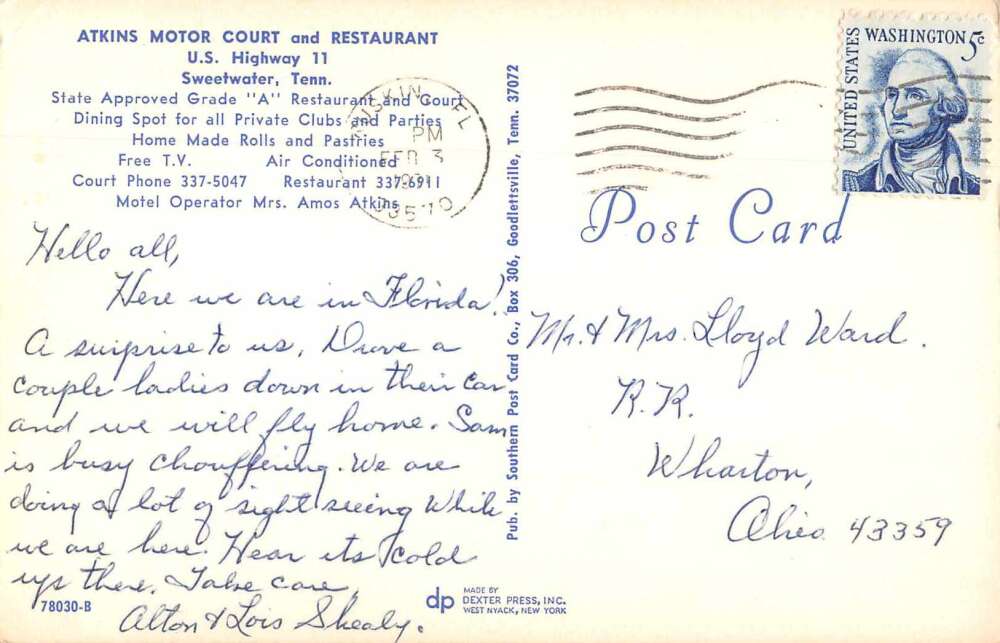 ATKINS MOTOR COURT and RESTAURANT
U.S. Highway 11
Sweetwater, Tenn.
State Approved Grade "A" Restaurant and Court
Dining Spot for all Private Clubs and Parties
Home Made Rolls and Pastries
Free T.V. Air Conditioned
Court Phone 337-5047 Restaurant 337-6911
Motel Operator Mrs. Amos Atkins
RUSKIN, FL
PM
FEB 3
33570
Hello all,
Here we are in Florida!
A surprise to us. Drove a
couple ladies down in their car
and we will fly home. Sam
is busy chouffering. We are
doing a lot of sight seeing while
we are here. Hear its cold
up there. Take care.
Alton & Lois Shealy.
78030-B
Pub. by Southern Post Card Co., Box 306, Goodlettsville, Tenn. 37072
dp MADE BY
DEXTER PRESS, INC.
WEST NYACK, NEW YORK
UNITED STATES
WASHINGTON 5c
Post Card
Mr. & Mrs. Lloyd Ward.
R.R.
Wharton,
Ohio 43359